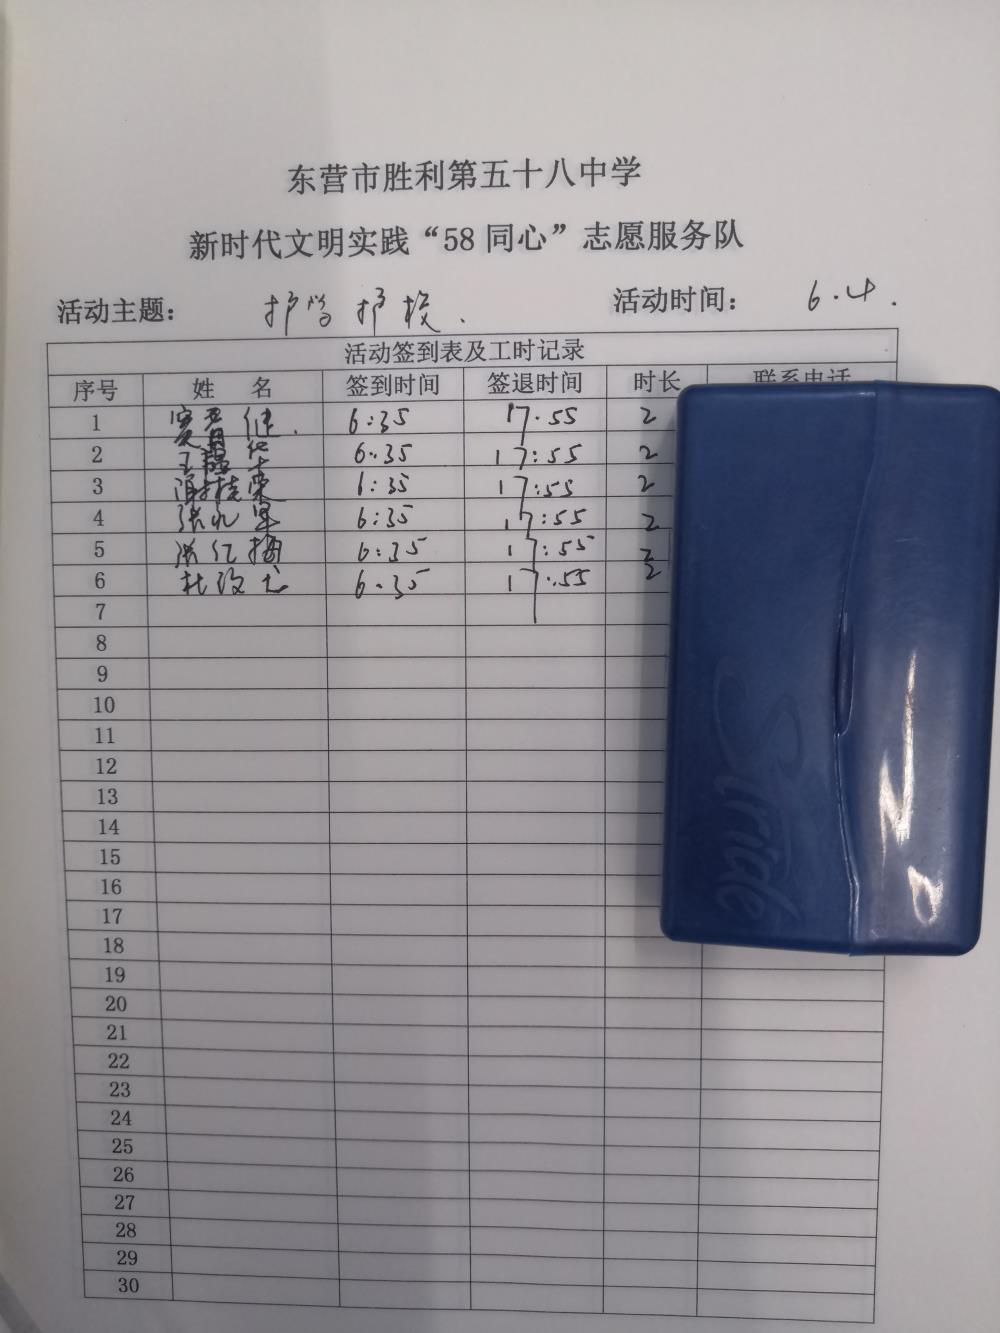 东营市胜利第五十八中学
新时代文明实践“58同心”志愿服务队
活动主题： 护学护校. 活动时间： 6.4.
活动签到表及工时记录
序号 姓 名 签到时间 签退时间 时长 联系电话
1 6:35 17.55 2
2 王 6.35 17:55 2
3 6:35 17:55 2
4 张 6:35 17:55 2
5 红梅 6:35 17:55 2
6 杜 6.35 17.55 2
7
8
9
10
11
12
13
14
15
16
17
18
19
20
21
22
23
24
25
26
27
28
29
30
Stride